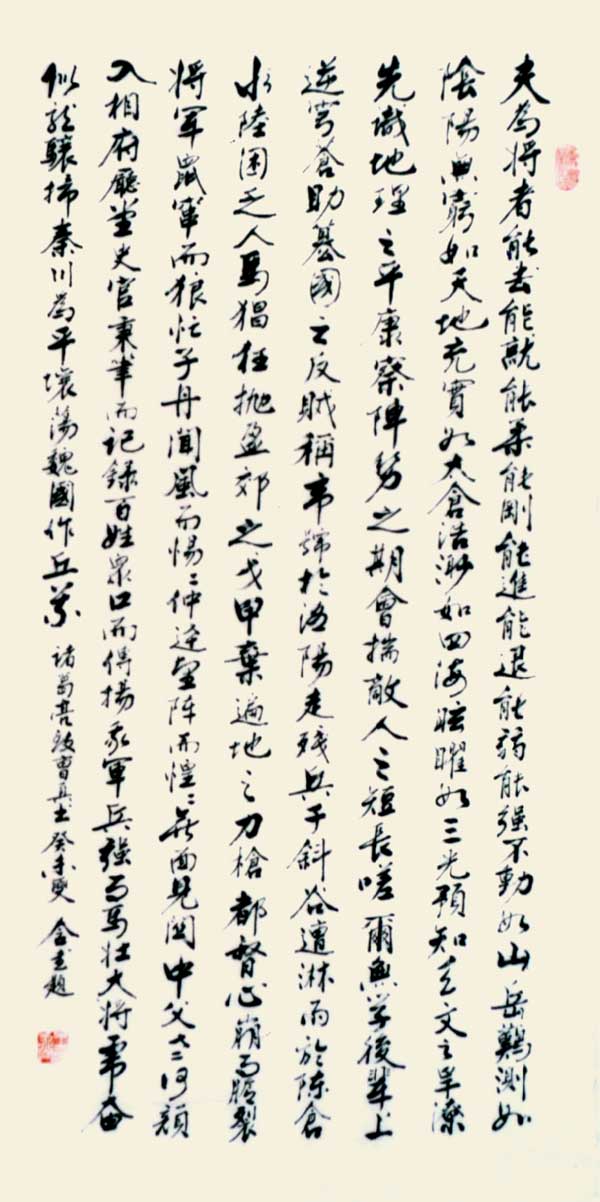 夫為將者能去能就能柔能剛能進能退能弱能强不動如山岳難測如
陰陽無窮如天地充實如太倉浩渺如四海眩曜如三光預知天文之旱潦
先識地理之平康察陣勢之期會揣敵人之短長嗟爾無學後輩上
逆穹蒼助篡國之反賊稱帝號於洛陽走殘兵于斜谷遭淋雨於陳倉
水陸困乏人馬猖狂拋盈郊之戈甲棄遍地之刀槍都督心崩而膽裂
將軍鼠竄而狼忙子丹聞風而惕〻仲達望陣而惶〻無面見関中父老何顔
入相府廳堂史官秉筆而記録百姓衆口而傳揚我軍兵强而馬壮大將虎奮
似龍驤掃秦川為平壤蕩魏國作丘荒 諸葛亮致曹真書 癸未夏 題